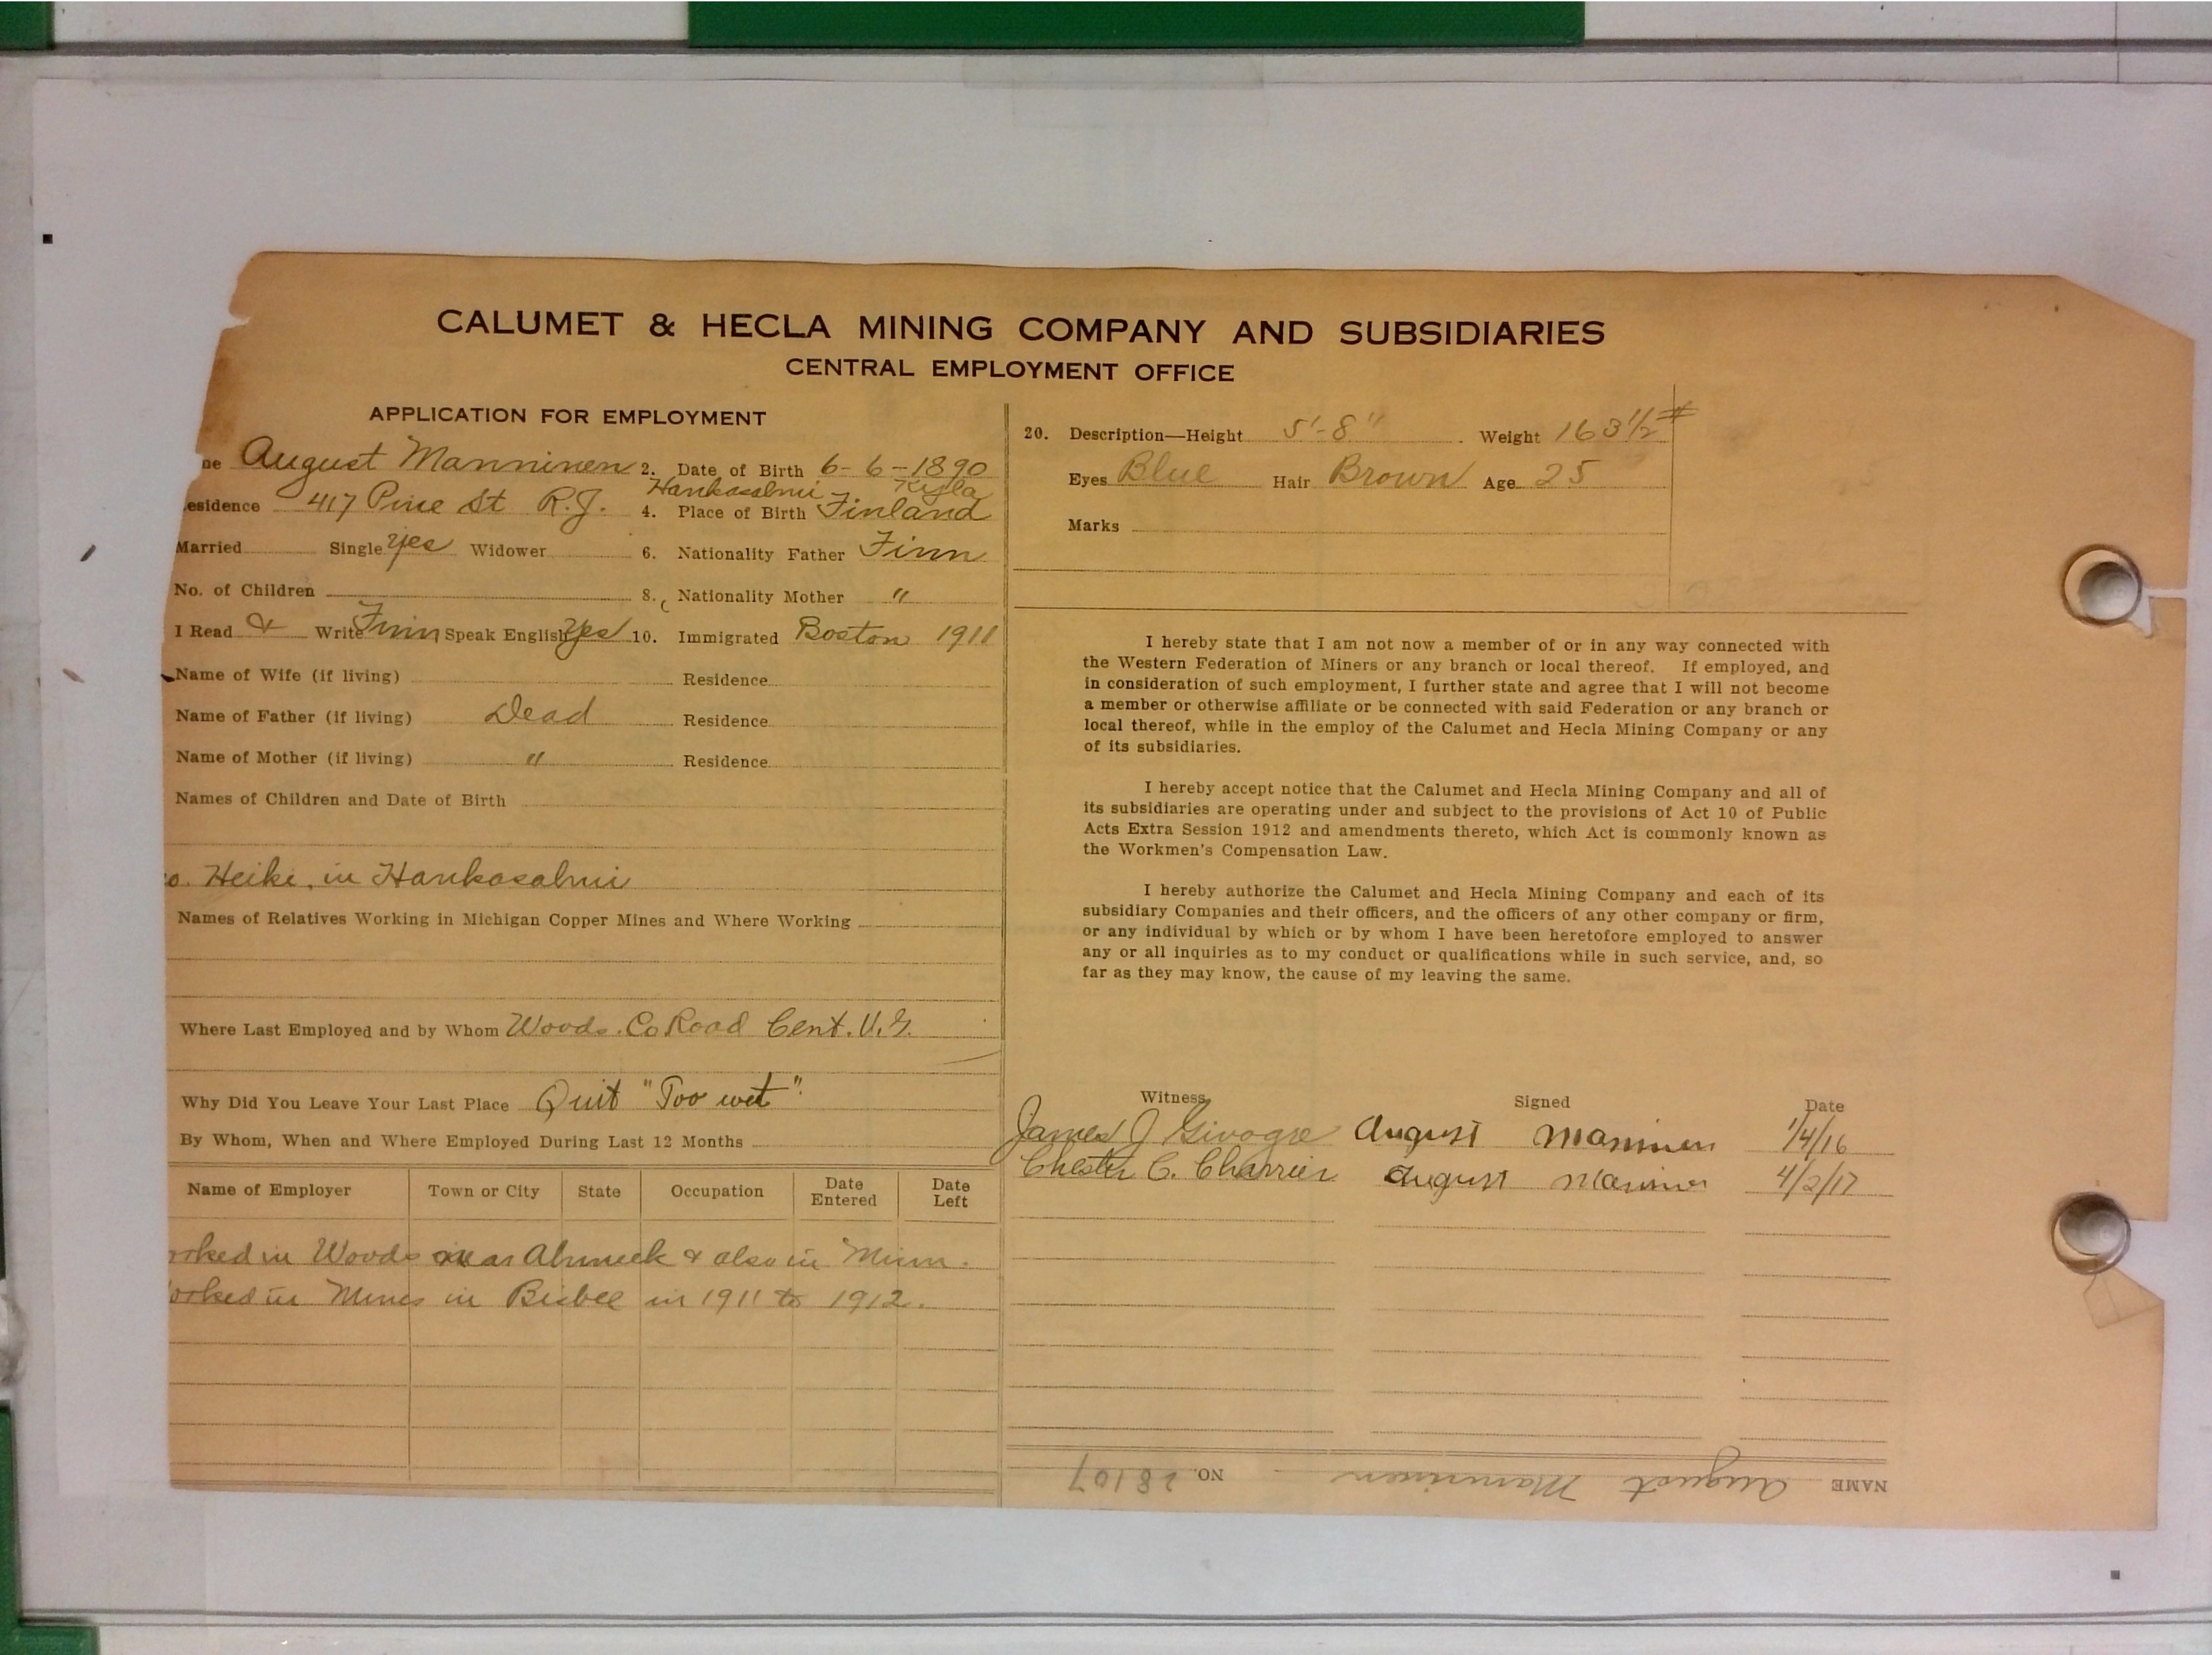 CALUMET & HECLA MINING COMPANY AND SUBSIDIARIES
CENTRAL EMPLOYMENT OFFICE
APPLICATION FOR EMPLOYMENT
me August Manninen 2. Date of Birth 6-6-1890
Hankasalmi Kyla
esidence 417 Pine St R.J. 4. Place of Birth Finland
Married Single yes Widower 6. Nationality Father Finn
No. of Children 8. Nationality Mother "
I Read & Write Finn Speak English Yes 10. Immigrated Boston 1911
Name of Wife (if living) Residence
Name of Father (if living) Dead Residence
Name of Mother (if living) " Residence
Names of Children and Date of Birth
o. Heiki, in Hankasalmi
Names of Relatives Working in Michigan Copper Mines and Where Working
Where Last Employed and by Whom Woods. Co Road Cent. V.G.
Why Did You Leave Your Last Place Quit "Too wet"
By Whom, When and Where Employed During Last 12 Months
Name of Employer Town or City State Occupation Date Entered Date Left
orked in Woods near Ahmeek & also in Minn.
orked in Mines in Bisbee in 1911 to 1912.
20. Description—Height 5'-8" Weight 163 1/2 #
Eyes Blue Hair Brown Age 25
Marks
I hereby state that I am not now a member of or in any way connected with
the Western Federation of Miners or any branch or local thereof. If employed, and
in consideration of such employment, I further state and agree that I will not become
a member or otherwise affiliate or be connected with said Federation or any branch or
local thereof, while in the employ of the Calumet and Hecla Mining Company or any
of its subsidiaries.
I hereby accept notice that the Calumet and Hecla Mining Company and all of
its subsidiaries are operating under and subject to the provisions of Act 10 of Public
Acts Extra Session 1912 and amendments thereto, which Act is commonly known as
the Workmen's Compensation Law.
I hereby authorize the Calumet and Hecla Mining Company and each of its
subsidiary Companies and their officers, and the officers of any other company or firm,
or any individual by which or by whom I have been heretofore employed to answer
any or all inquiries as to my conduct or qualifications while in such service, and, so
far as they may know, the cause of my leaving the same.
Witness Signed Date
James J Givogre August Manninen 1/4/16
Chester C. Charrier August Manninen 4/2/17
NAME August Manninen NO. 28107